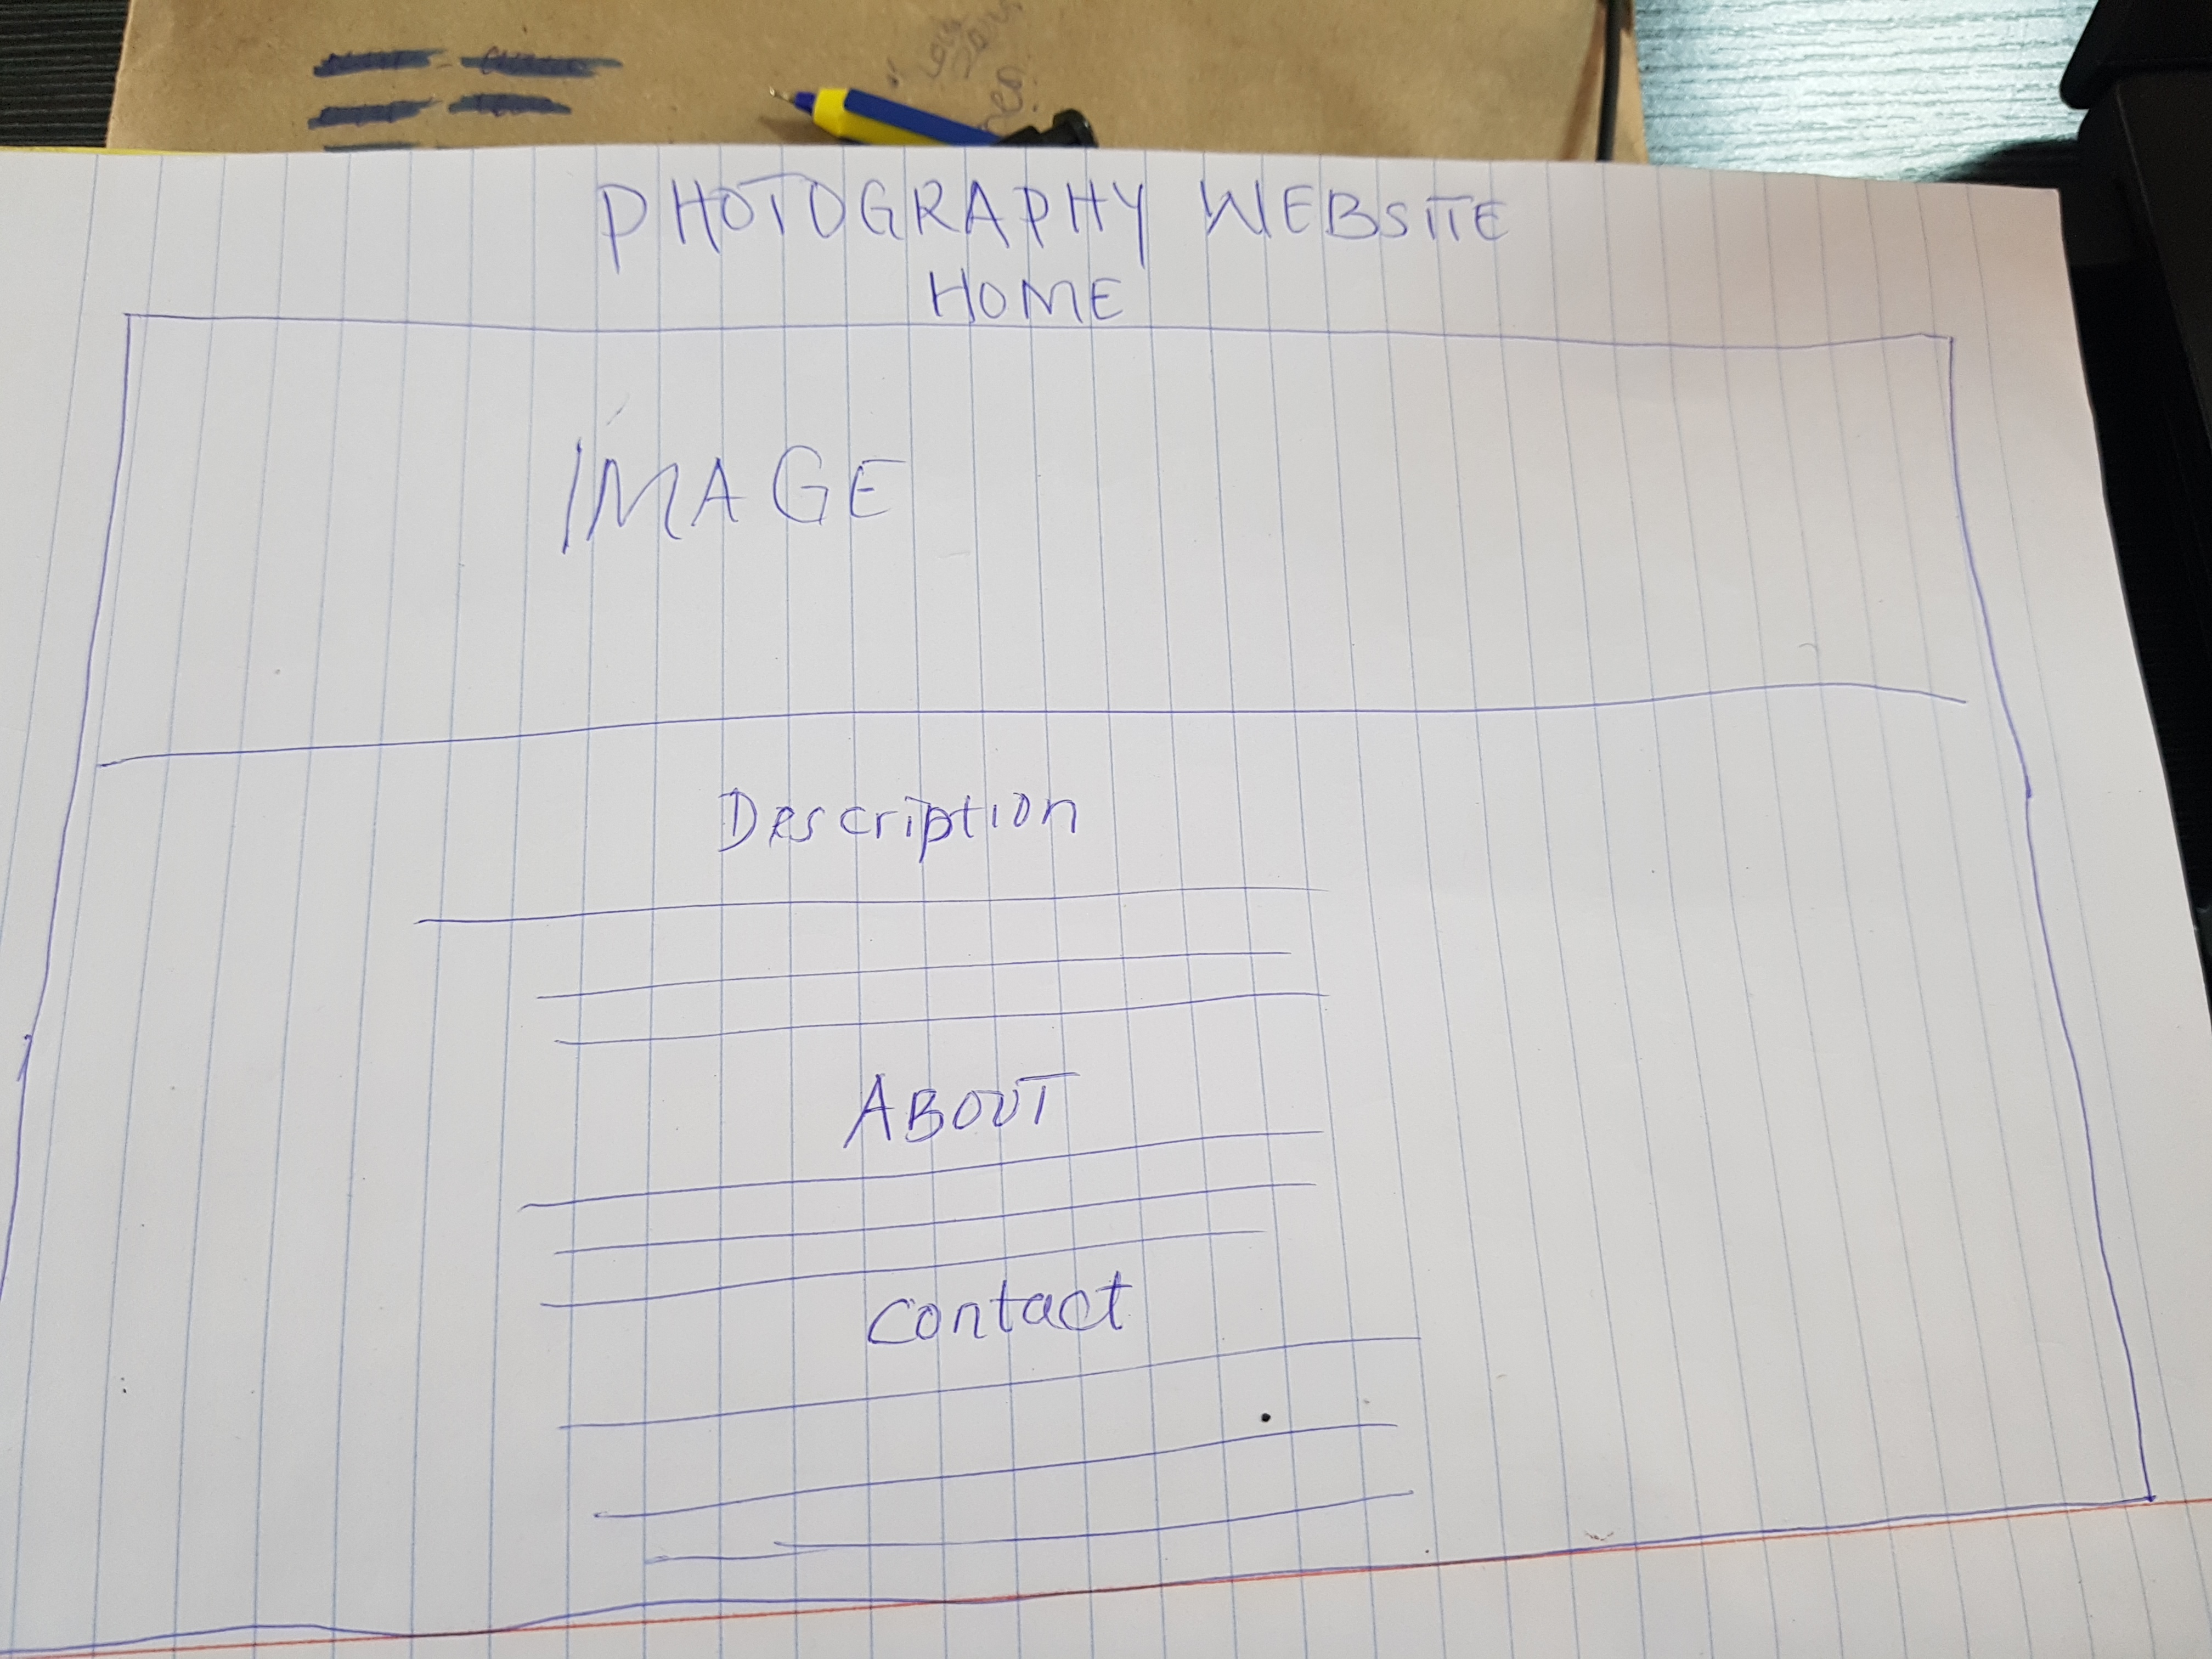 PHOTOGRAPHY WEBSITE
HOME
IMAGE
Description
ABOUT
Contact